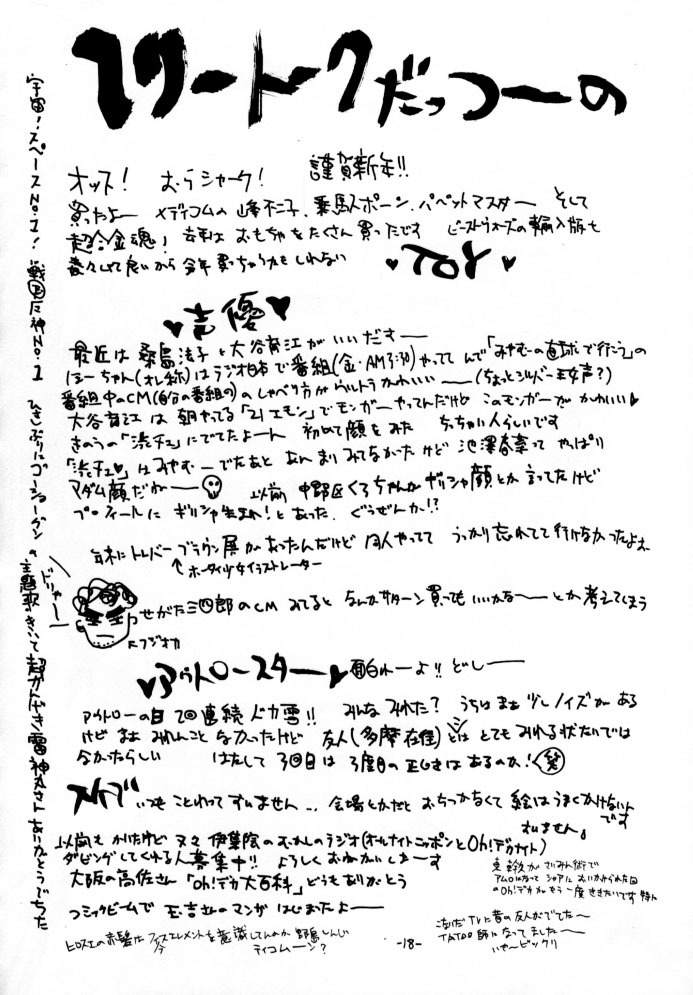 フリートークだっつーの
オッス! むらシャーク! 謹賀新年!!
買ったよー メディコムの峰不二子、乗馬スポーン、パペットマスター そして
超合金魂! 去年は おもちゃをたくさん買ったです ビーストウォーズの輸入版も
着々として良いから今年買っちゃうかもしれない ♥TOY♥
♥声優♥
最近は 桑島法子と大谷育江がいいだすー
ほーちゃん(オレ称)はラジオ日本で番組(金・AM3:30)やってんで「みやむーの直球で行こう」の
番組中のCM(自分の番組の)のしゃべり方がウルトラかわいいー(ちょっとシルバー王女声?)
大谷育江は 朝やってる「21エモン」でモンガーやってんだけど このモンガーがかわいい♥
きのうの「渋チェ」にでてたよーん 初めて顔をみた ちっちゃい人らしいです
「渋チェ♥」はみやむーでたあと あんまりみてなかったけど 池澤春菜って やっぱり
マダム顔だがー 以前 中野区くろちゃんがギリシャ顔とか言ってたけど
プロフィールに ギリシャ生まれ!とあった ぐうぜんか!?
年末にトレバー・ブラウン展があったんだけど 同人やってて うっかり忘れてて行けなかったよォ
↑ホータイ少女イラストレーター
ドリャー
せがた三四郎のCM みてると なんかサターン買ってもいいかなーとか考えてしまう
←フジオカ
♥アウトロースター♥ 面白れーよ!! どしー
アウトローの日 2回連続ドカ雪!! みんなみれた? うちはまぁ少しノイズがある
けど まぁ みれんことなかったけど 友人(多摩在住)とかは とてもみれる状たいでは
なかったらしい はたして3回目は 3度目の正じきはあるのか!(笑)
スケブ いつもことわってすいません… 会場とかだと おちつかなくて絵はうまくかけないんです
すいません。
以前もかいたけど 又々 伊集院のむかしのラジオ(オールナイトニッポンとOh!デカナイト)
ダビングしてくれる人募集中!! よろしくおねがいしまーす
大阪の高佐さん「Oh!デカ大百科」どうもありがとう
東幹久がさいみん術で
アムロになって シャアにおいかけられた回
のOh!デカがもう一度ききたいです 特に
コミックビームで 玉吉さんのマンガ はじまったよー
こないだTVに昔の友人がでてたー
TATOO師になってましたー
いやービックリ
ヒロスエの赤髪は フィフスエレメントを意識してんのか 野島しんじ
ティコムーン?
-18-
宇宙!スペースNo.1! 戦国魔神No.1 ひさしぶりにゴーショーグンの主題歌きいて超かんげき 雷神丸さんありがとうでちた